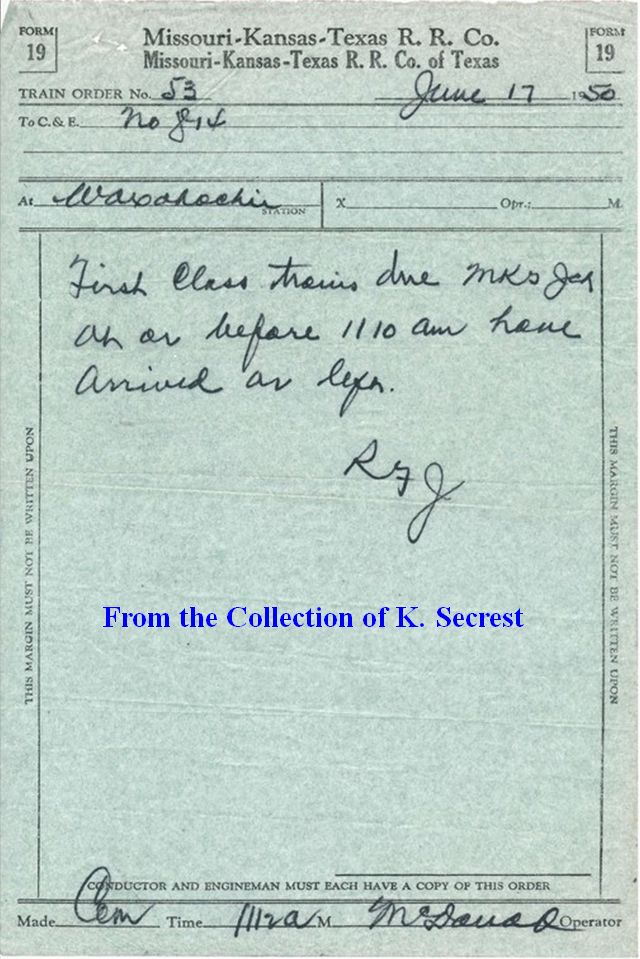 FORM 19
Missouri-Kansas-Texas R. R. Co.
Missouri-Kansas-Texas R. R. Co. of Texas
FORM 19
TRAIN ORDER No. 53 June 17 1950
To C. & E. No
At Waxahachie STATION X Opr.; M.
First Class trains due MKT Jct
at or before 1110 am have
arrived or left.
R J
THIS MARGIN MUST NOT BE WRITTEN UPON
THIS MARGIN MUST NOT BE WRITTEN UPON
From the Collection of K. Secrest
CONDUCTOR AND ENGINEMAN MUST EACH HAVE A COPY OF THIS ORDER
Made Com Time 1112a M McDonald Operator